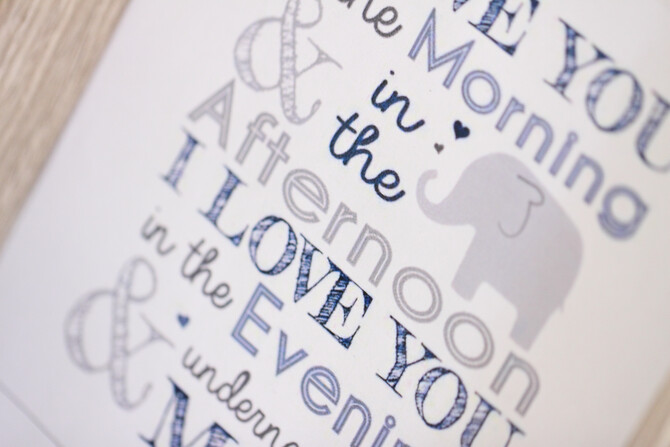 VE YOU
the Morning
& in the
Afternoon
I LOVE YOU
in the Evenin
& undern
M